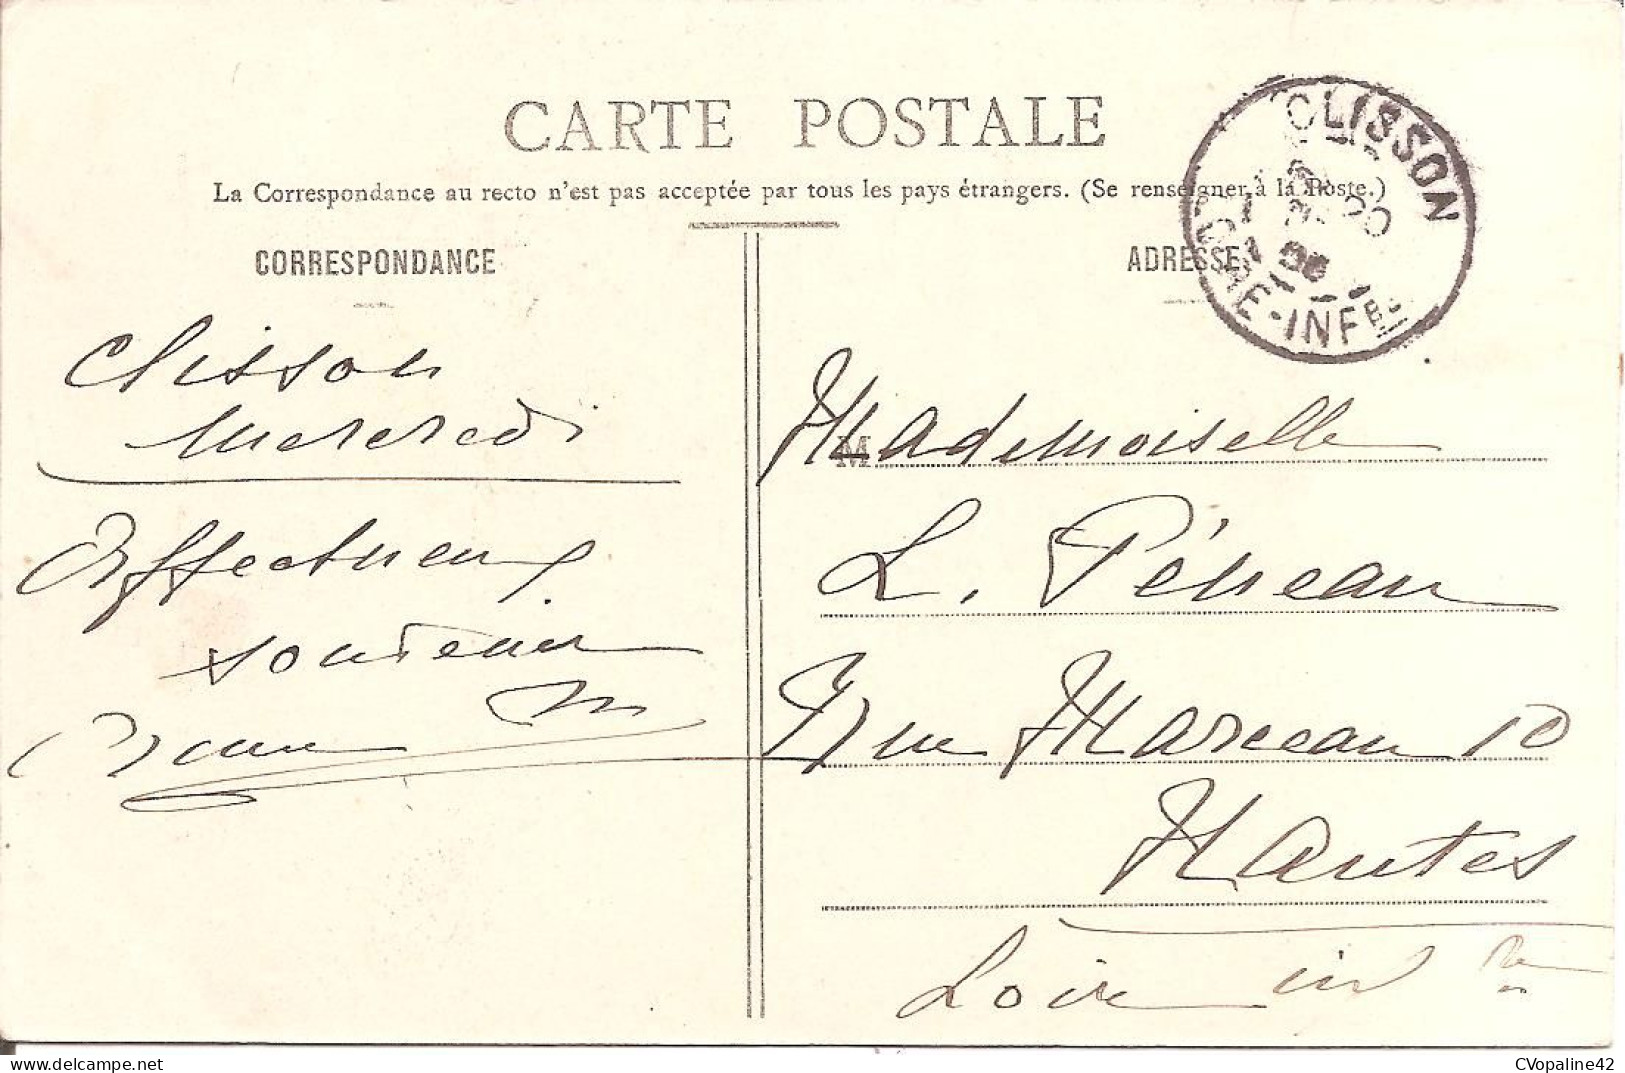 CARTE POSTALE
La Correspondance au recto n'est pas acceptée par tous les pays étrangers. (Se renseigner à la Poste.)
CORRESPONDANCE
Clisson
Mercredi
Affectueux
souvenir
ADRESSE
CLISSON
LOIRE-INFRE
M
Mademoiselle
L. Péneau
Rue Marceau 10
Nantes
Loire inf re
delcampe.net
CVopaline42